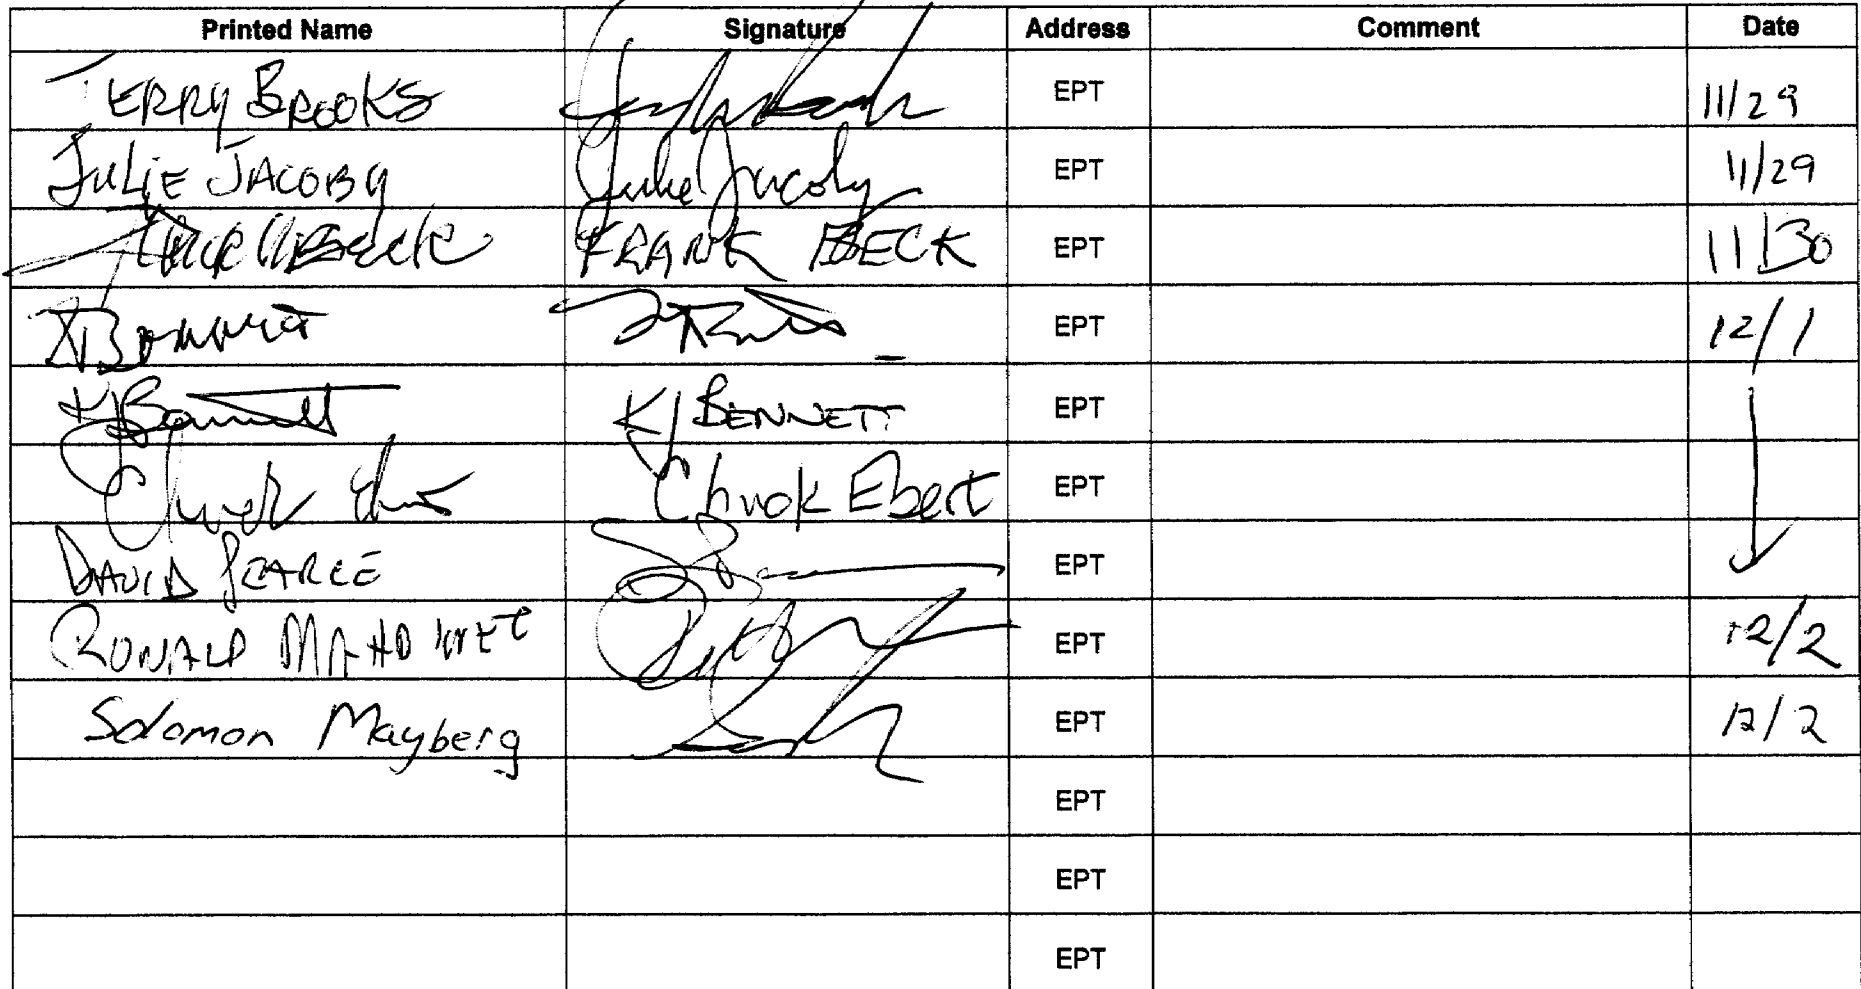 Printed Name Signature Address Comment Date
TERRY BROOKS EPT 11/29
JULIE JACOBY Julie Jacoby EPT 11/29
FRANK BECK EPT 11/30
EPT 12/1
KJ Bennett KJ BENNETT EPT
Chuck Ebert EPT
DAVID PEARCE EPT
RONALD EPT 12/2
Solomon Mayberg EPT 12/2
EPT
EPT
EPT